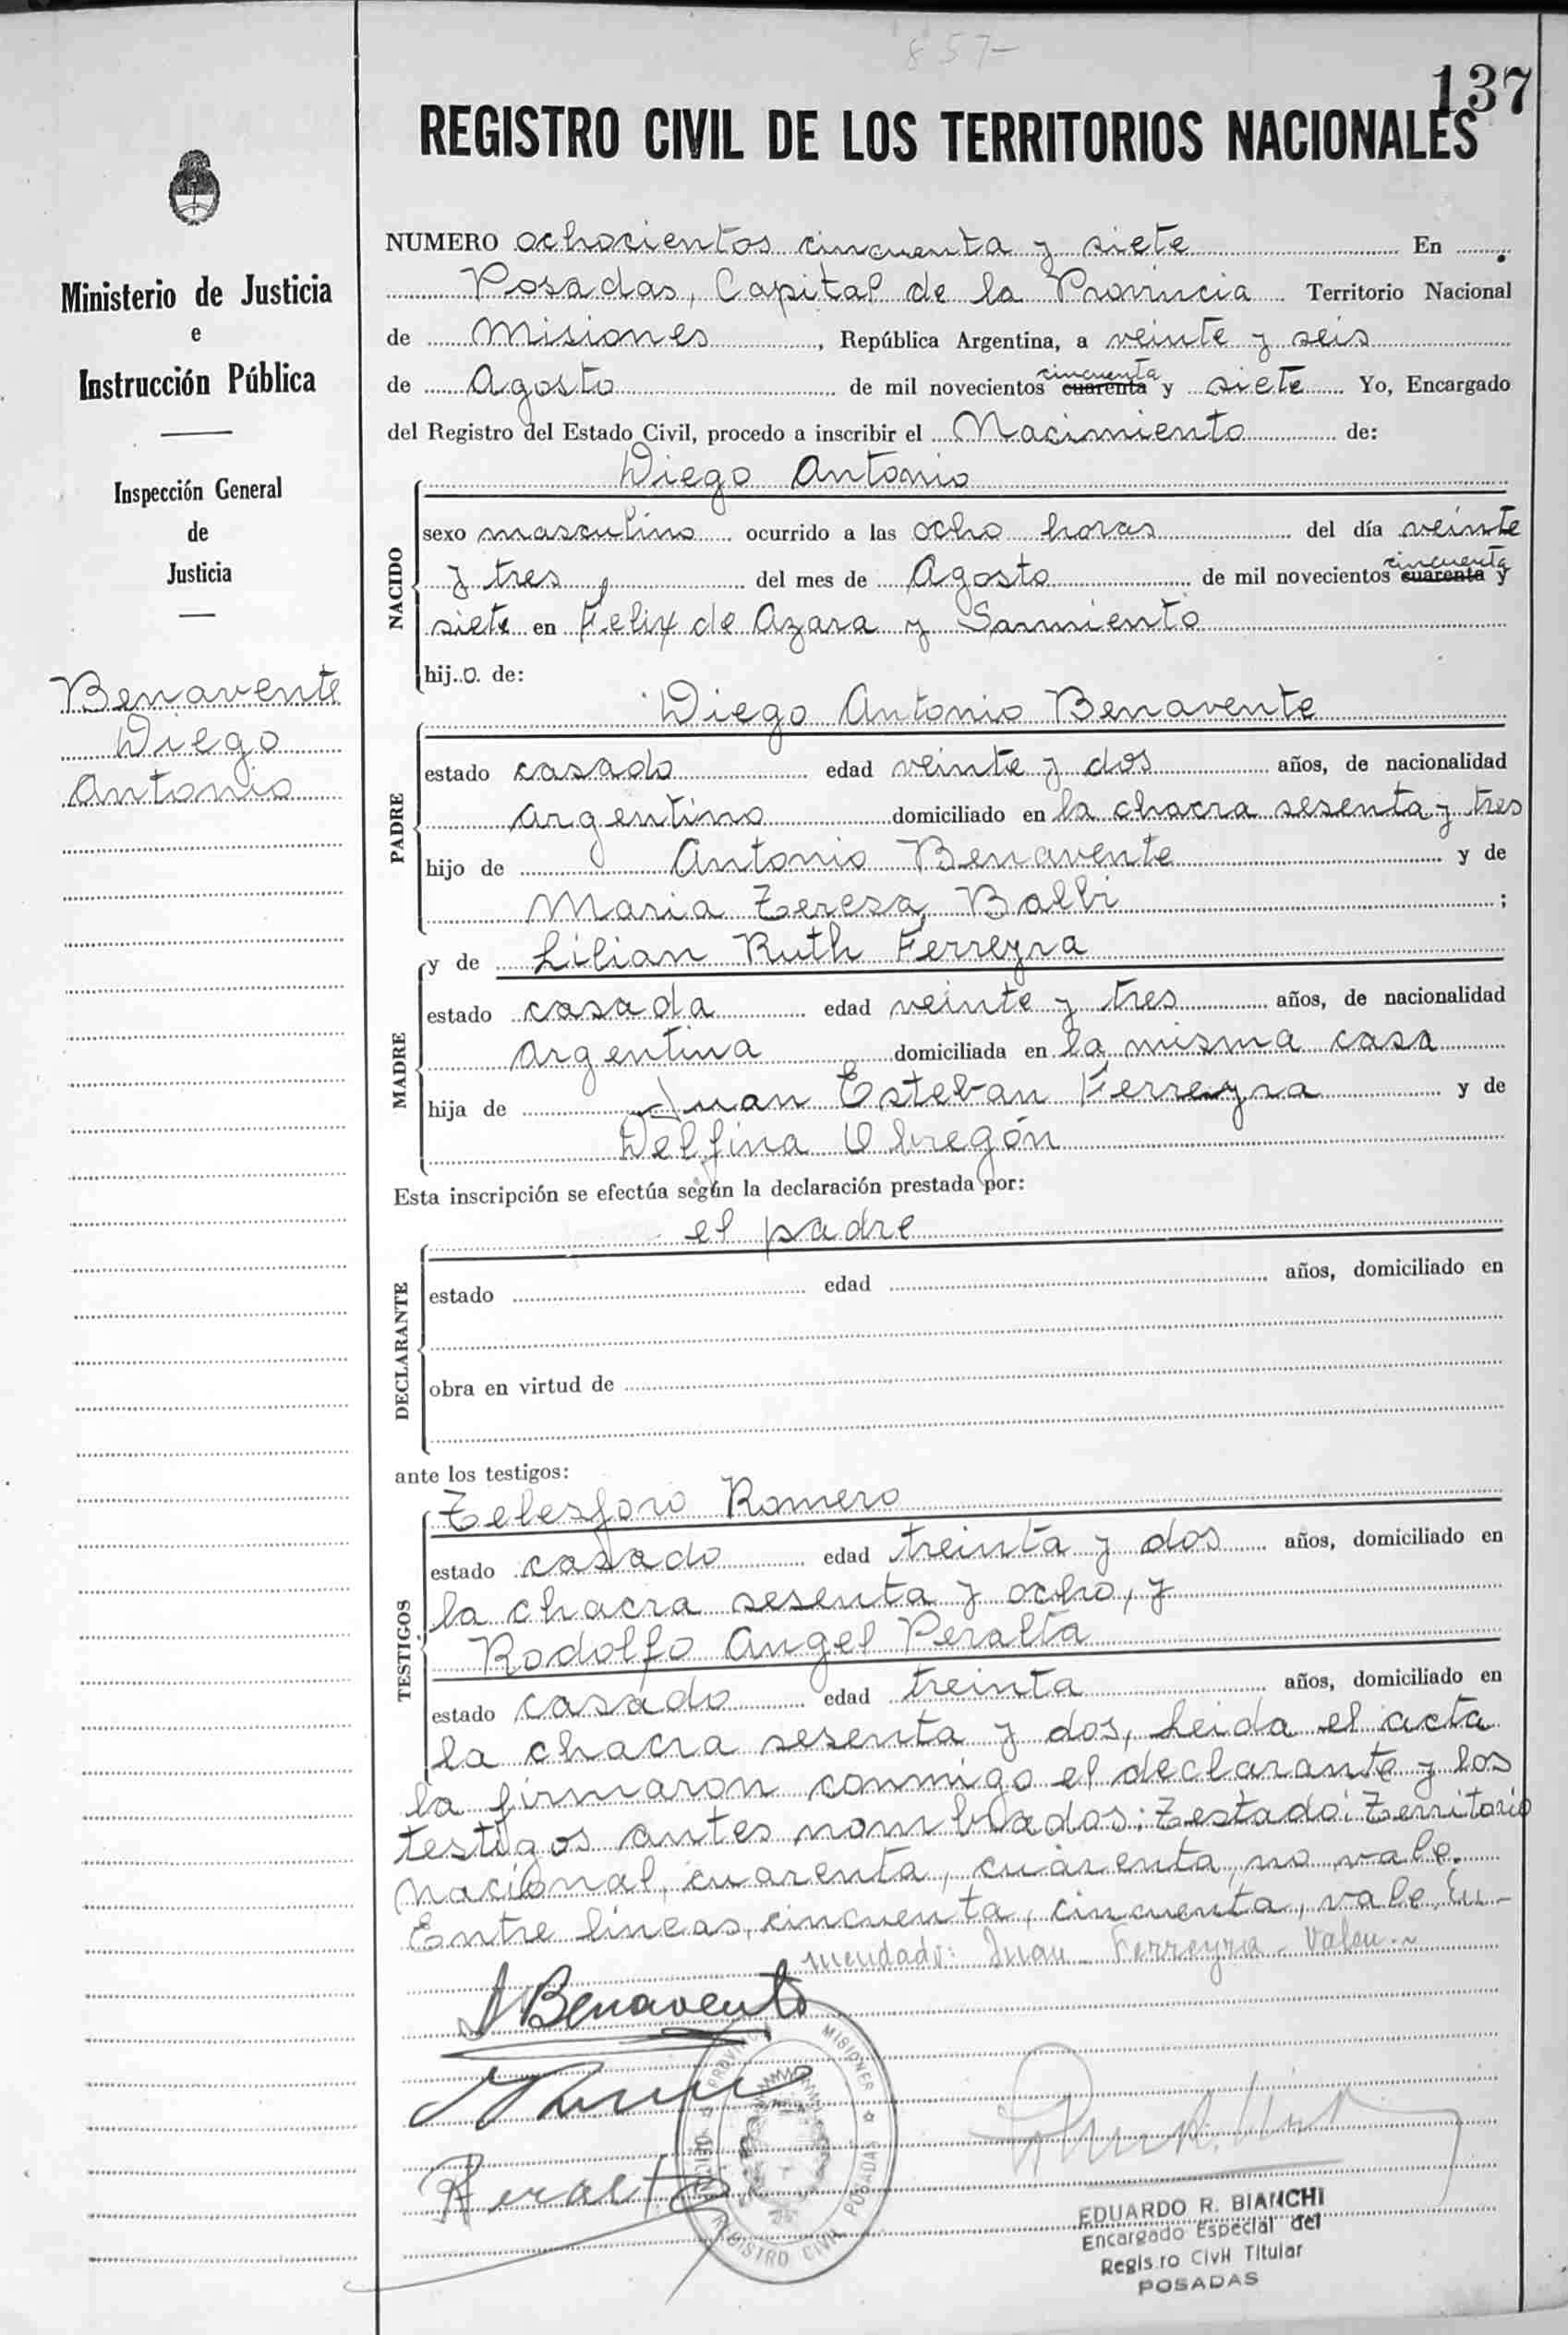 857-
137
REGISTRO CIVIL DE LOS TERRITORIOS NACIONALES
Ministerio de Justicia
e
Instrucción Pública
Inspección General
de
Justicia
Benavente
Diego
Antonio
NUMERO ochocientos cincuenta y siete En
Posadas, Capital de la Provincia Territorio Nacional
de Misiones, República Argentina, a veinte y seis
de Agosto de mil novecientos cuarenta cincuenta y siete Yo, Encargado
del Registro del Estado Civil, procedo a inscribir el Nacimiento de:
NACIDO
Diego Antonio
sexo masculino ocurrido a las ocho horas del día veinte
y tres, del mes de Agosto de mil novecientos cuarenta cincuenta y
siete en Felix de Azara y Sarmiento
hijo de:
PADRE
Diego Antonio Benavente
estado casado edad veinte y dos años, de nacionalidad
argentino domiciliado en la chacra sesenta y tres
hijo de Antonio Benavente y de
Maria Teresa Balbi ;
MADRE
y de Lilian Ruth Ferreyra
estado casada edad veinte y tres años, de nacionalidad
argentina domiciliada en la misma casa
hija de Juan Esteban Ferreyra y de
Delfina Obregón
Esta inscripción se efectúa según la declaración prestada por:
DECLARANTE
el padre
estado edad años, domiciliado en
obra en virtud de
ante los testigos:
TESTIGOS
Telesforo Romero
estado casado edad treinta y dos años, domiciliado en
la chacra sesenta y ocho, y
Rodolfo Angel Peralta
estado casado edad treinta años, domiciliado en
la chacra sesenta y dos, Leida el acta
la firmaron conmigo el declarante y los
testigos antes nombrados: Testado: Territorio
nacional, cuarenta, cuarenta, no vale.
Entre líneas, cincuenta, cincuenta, vale. En-
mendado: Juan - Ferreyra - Valen.-
Benavente
Peralta
PROVINCIA MISIONES
REGISTRO CIVIL POSADAS
EDUARDO R. BIANCHI
Encargado Especial del
Regis.ro Civil Titular
POSADAS